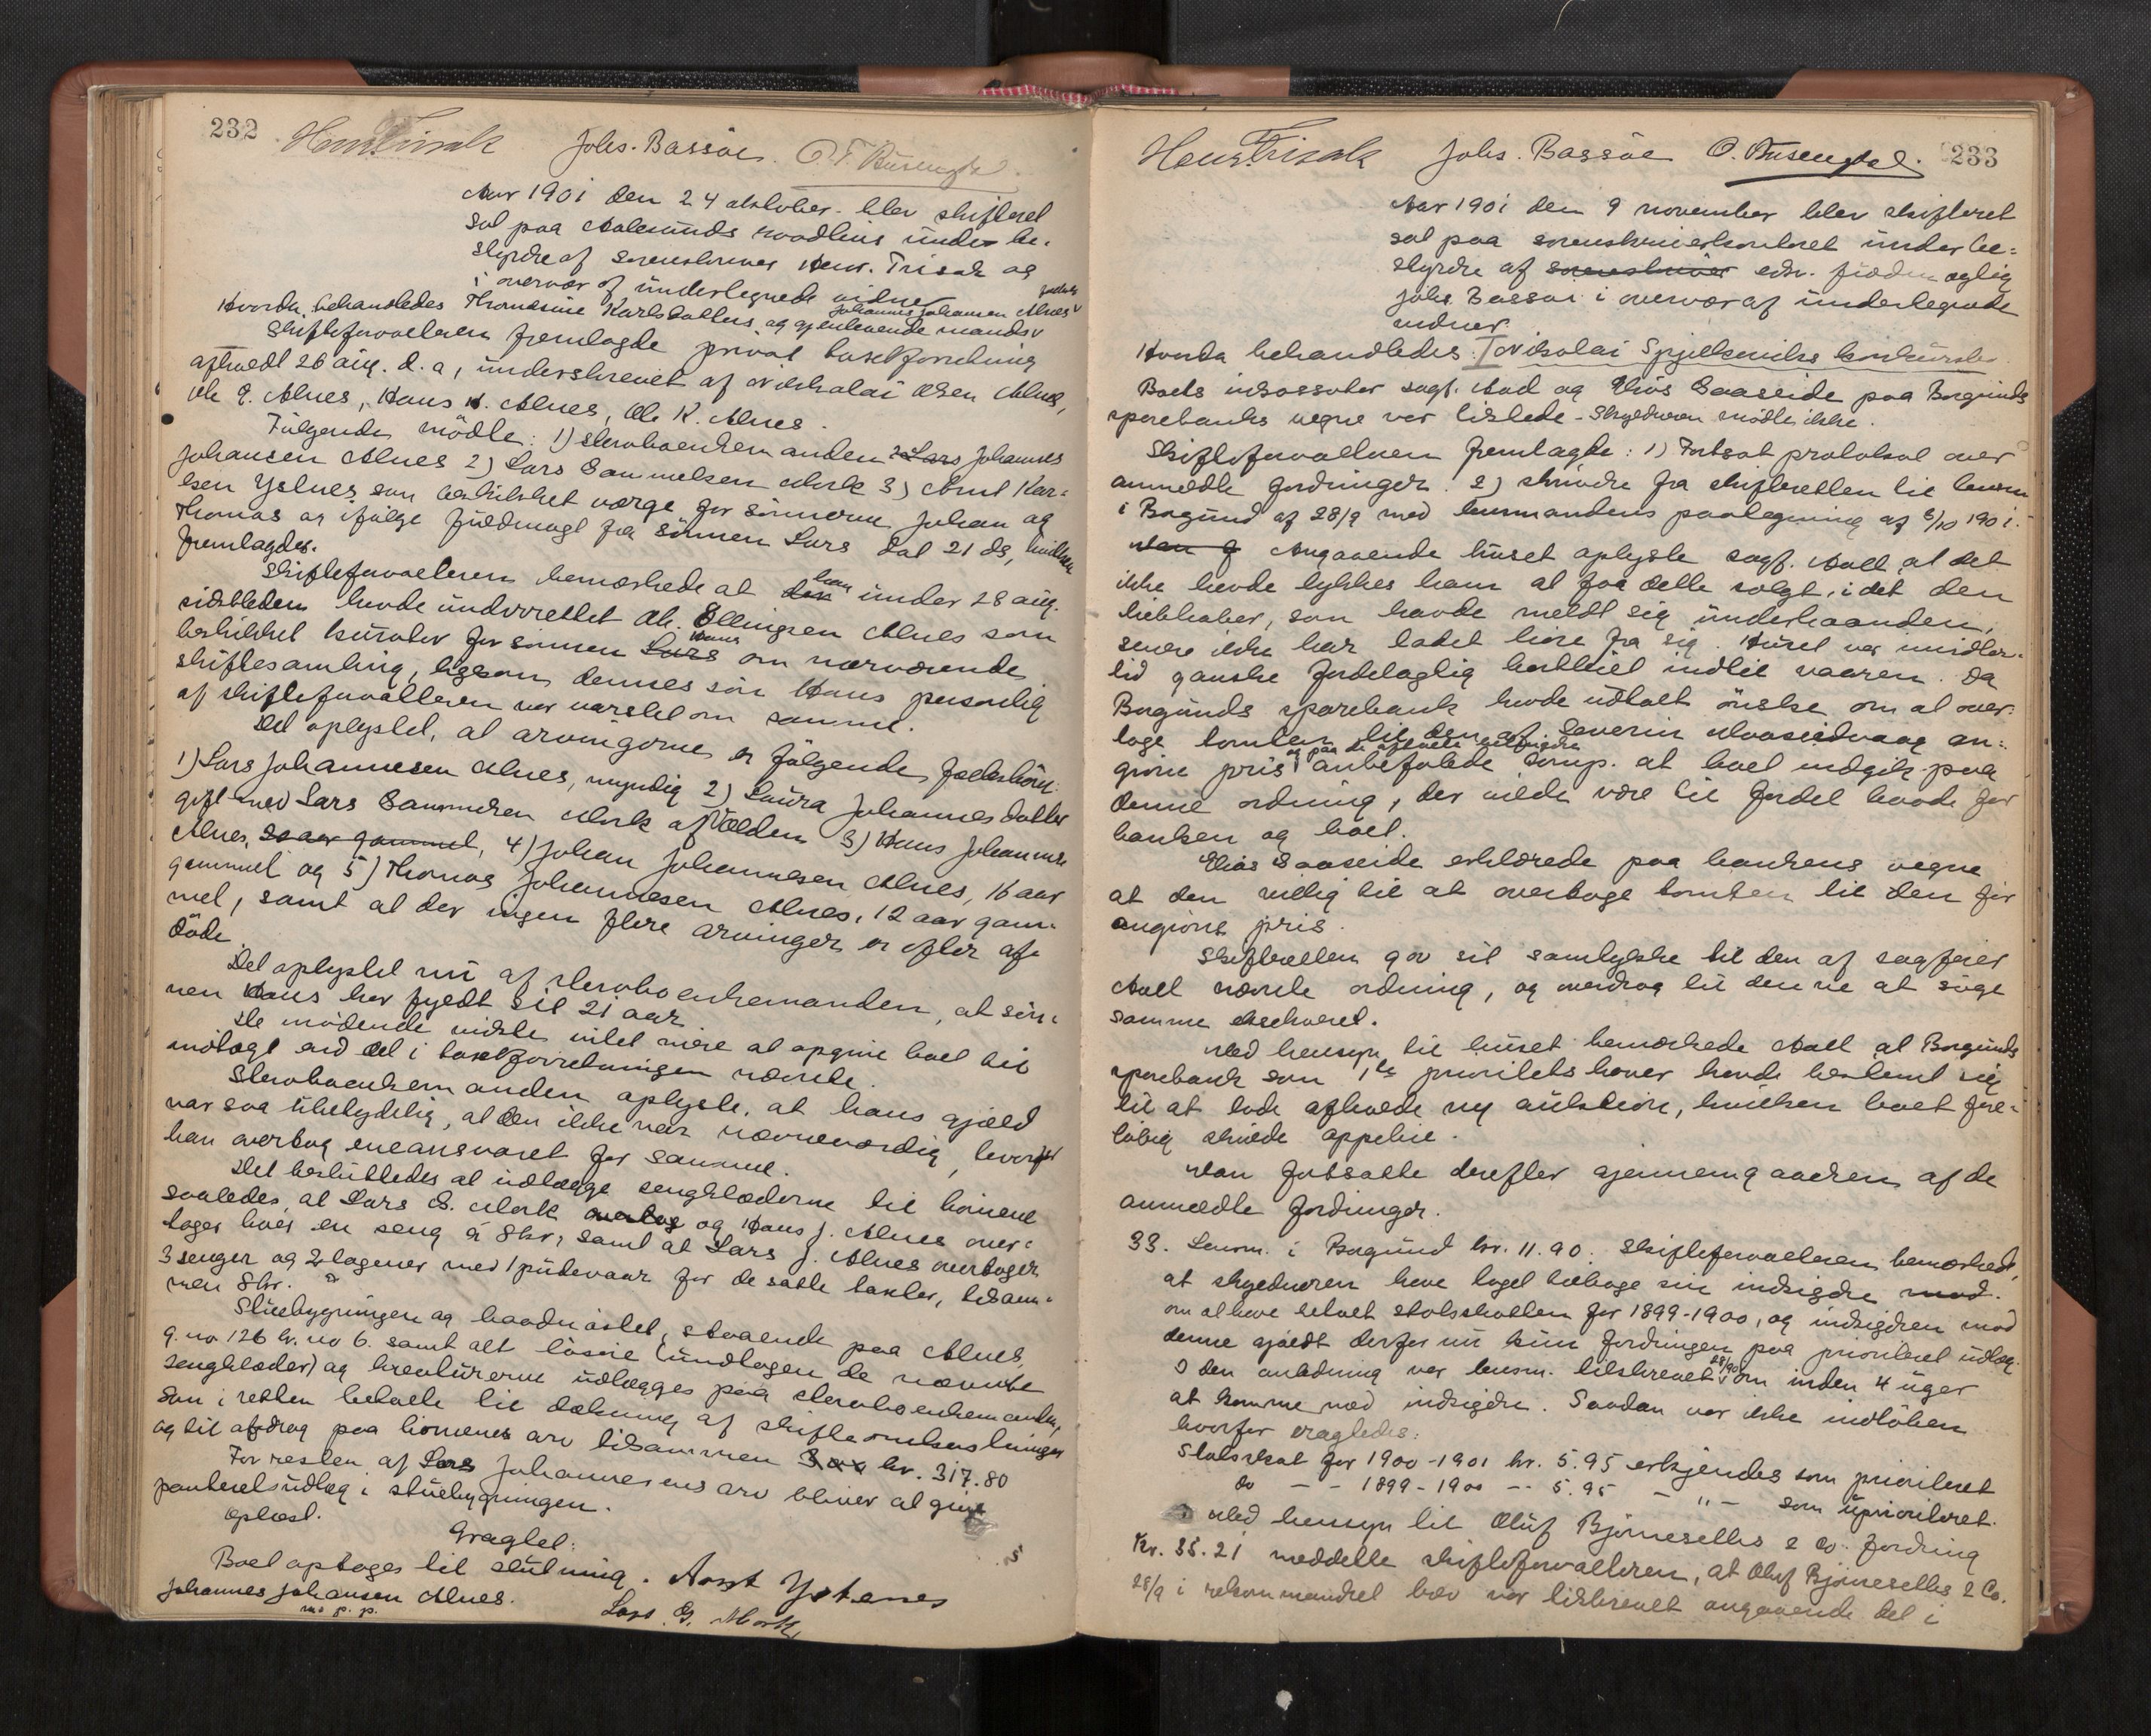 232
Johs. Bassøe.
Aar 1901 den 24 oktober blev skifteret
sat paa Aalesunds raadhus under be-
styrelse af sorenskriver Henr. Frisak og
i overvær af undertegnede vidner
Hvorda behandledes Thomasine Karlsdatters og gjenlevende mands Johannes Johansen Alnes fællesbo
Skifteforvalteren fremlagde privat taxtforretning
afholdt 26 aug. d. a, underskrevet af Nikolai Olsen Alnes,
Ole P. Alnes, Hans K. Alnes, Ole K. Alnes.
Følgende mødte: 1) Stervboenkemanden 2 Lars Johannes
Johansen Alnes 2) Lars Sammelsen Mork 3) Arnt Kar-
lsen Ystnes som beskikket værge for sønnerne Johan og
Thomas og ifølge fuldmagt fra sønnen Lars dat 21 ds, hvilken
fremlagdes.
Skifteforvalteren bemærkede at den han under 28 aug.
sidstleden havde underrettet Ole Ellingsen Alnes som
beskikket kurator for sønnen Lars Hans om nærværende
skiftesamling, ligesom dennes søn Hans personlig
af skifteforvalteren var varslet om samme.
Det oplystes, at arvingerne er følgende fællesbørn:
1) Lars Johannesen Alnes, myndig 2) Laura Johannesdatter
gift med Lars Sammelsen Mork af Volden 3) Hans Johannesen
Alnes, 20 aar gammel, 4) Johan Johannesen Alnes, 16 aar
gammel og 5) Thomas Johannesen Alnes, 12 aar gam-
mel, samt at der ingen flere arvinger er efter af-
døde.
Det oplystes nu af stervboenkemanden, at søn-
nen Hans har fyldt sit 21 aar
De mødende vidste intet mere at opgive boet til
indtægt end det i taxtforretningen nævnte.
Stervboenkemanden oplyste, at hans gjæld
var saa ubetydelig, at den ikke var nævneværdig, hvorfor
han overtog eneansvaret for samme.
Det besluttedes at udlægge sengklæderne til børnene
saaledes, at Lars S. Mork overtog og Hans J. Alnes over-
tager hver en seng à 8 kr, samt at Lars J. Alnes overtager
3 senger og 2 lagener med 1 pudevaar for de satte takster, tilsam-
men 8 kr.
Stuebygningen og baadnøstet, staaende paa Alnes,
g. no 126 br. no 6. samt alt løsøre (undtagen de nævnte
sengklæder) og kreaturerne udlægges paa stervboenkemanden,
som i retten betalte til dækning af skifteomkostninger
og til afdrag paa børnenes arv tilsammen kr. 317.80
For resten af Lars Johannesens arv bliver at give
panteretsudlæg i stuebygningen.
Oplæst.
Eragtet:
Boet optages til slutning. Arnt Ystenes
Johannes Johansen Alnes.
m. p. p.
Lars S. Mork
Henr Frisak Johs. Bassøe 233
Aar 1901 den 9 november blev skifteret
sat paa sorenskriverkontoret under be-
styrelse af sorenskriver edsv. fuldmægtig
Johs Bassøe i overvær af undertegnede
vidner.
Hvorda behandledes: I Nikolai Spjelkeviks konkursbo
Boets inkassator sagf. Aall og Elias Gaaseide paa Borgunds
sparebanks vegne var tilstede - Skyldneren mødte ikke.
Skifteforvalteren fremlagde: 1) Fortsat protokol over
anmeldte fordringer. 2) skrivelse fra skifteretten til lensm
i Borgund af 28/9 med lensmandens paategning af 5/10 1901.
Man g Angaaende huset oplyste sagf. Aall at det
ikke havde lykkes ham at faa dette solgt, idet den
liebhaber, som havde meldt sig underhaanden,
senere ikke har ladet høre fra sig. Huset var imidler-
tid ganske fordelagtig bortleiet indtil vaaren. Da
Borgunds sparebank havde udtalt ønske om at over-
tage tomten til den af Severin Maaseidvaag an-
givne pris og paa de opgivne vilkaar anbefalede komp. at boet indgik paa
denne ordning, der vilde være til fordel baade for
banken og boet.
Elias Gaaseide erklærede paa bankens vegne
at den villig til at overtage tomten til den før
angivne pris.
Skifteretten gav sit samtykke til den af sagfører
Aall nævnte ordning, og overdrog til denne at søge
samme eksekveret.
Med hensyn til huset bemærkede Aall at Borgunds
sparebank som 1ste prioritetshaver havde bestemt sig
til at lade afholde ny auktion, hvilken boet fore-
løbig skulde appebie.
Man fortsatte derefter gjennemgaaelsen af de
anmeldte fordringer.
33. Lensm. i Borgund kr. 11.90. Skifteforvalteren bemærkede,
at skyldneren have taget tilbage sin indsigelse mod.
om at have betalt statsskatten for 1899-1900, og indsigelsen mod
denne gjældt derfor nu kun fordringen paa prioriteret udlæg.
I den anledning var lensm. tilskrevet 28/9 om inden 4 uger
at komme med indsigelse. Saadan var ikke indløben
hvorfor eragtedes:
Statsskat for 1900-1901 kr. 5.95 erkjendes som prioriteret
do - - 1899-1900 -- 5.95 - " - som uprioriteret.
Med hensyn til Oluf Bjørnesettes & Co. fordring
Kr. 35.21 meddelte skifteforvalteren, at Oluf Bjørnesettes & Co.
28/9 i rekommanderet brev var tilskrevet angaaende det i